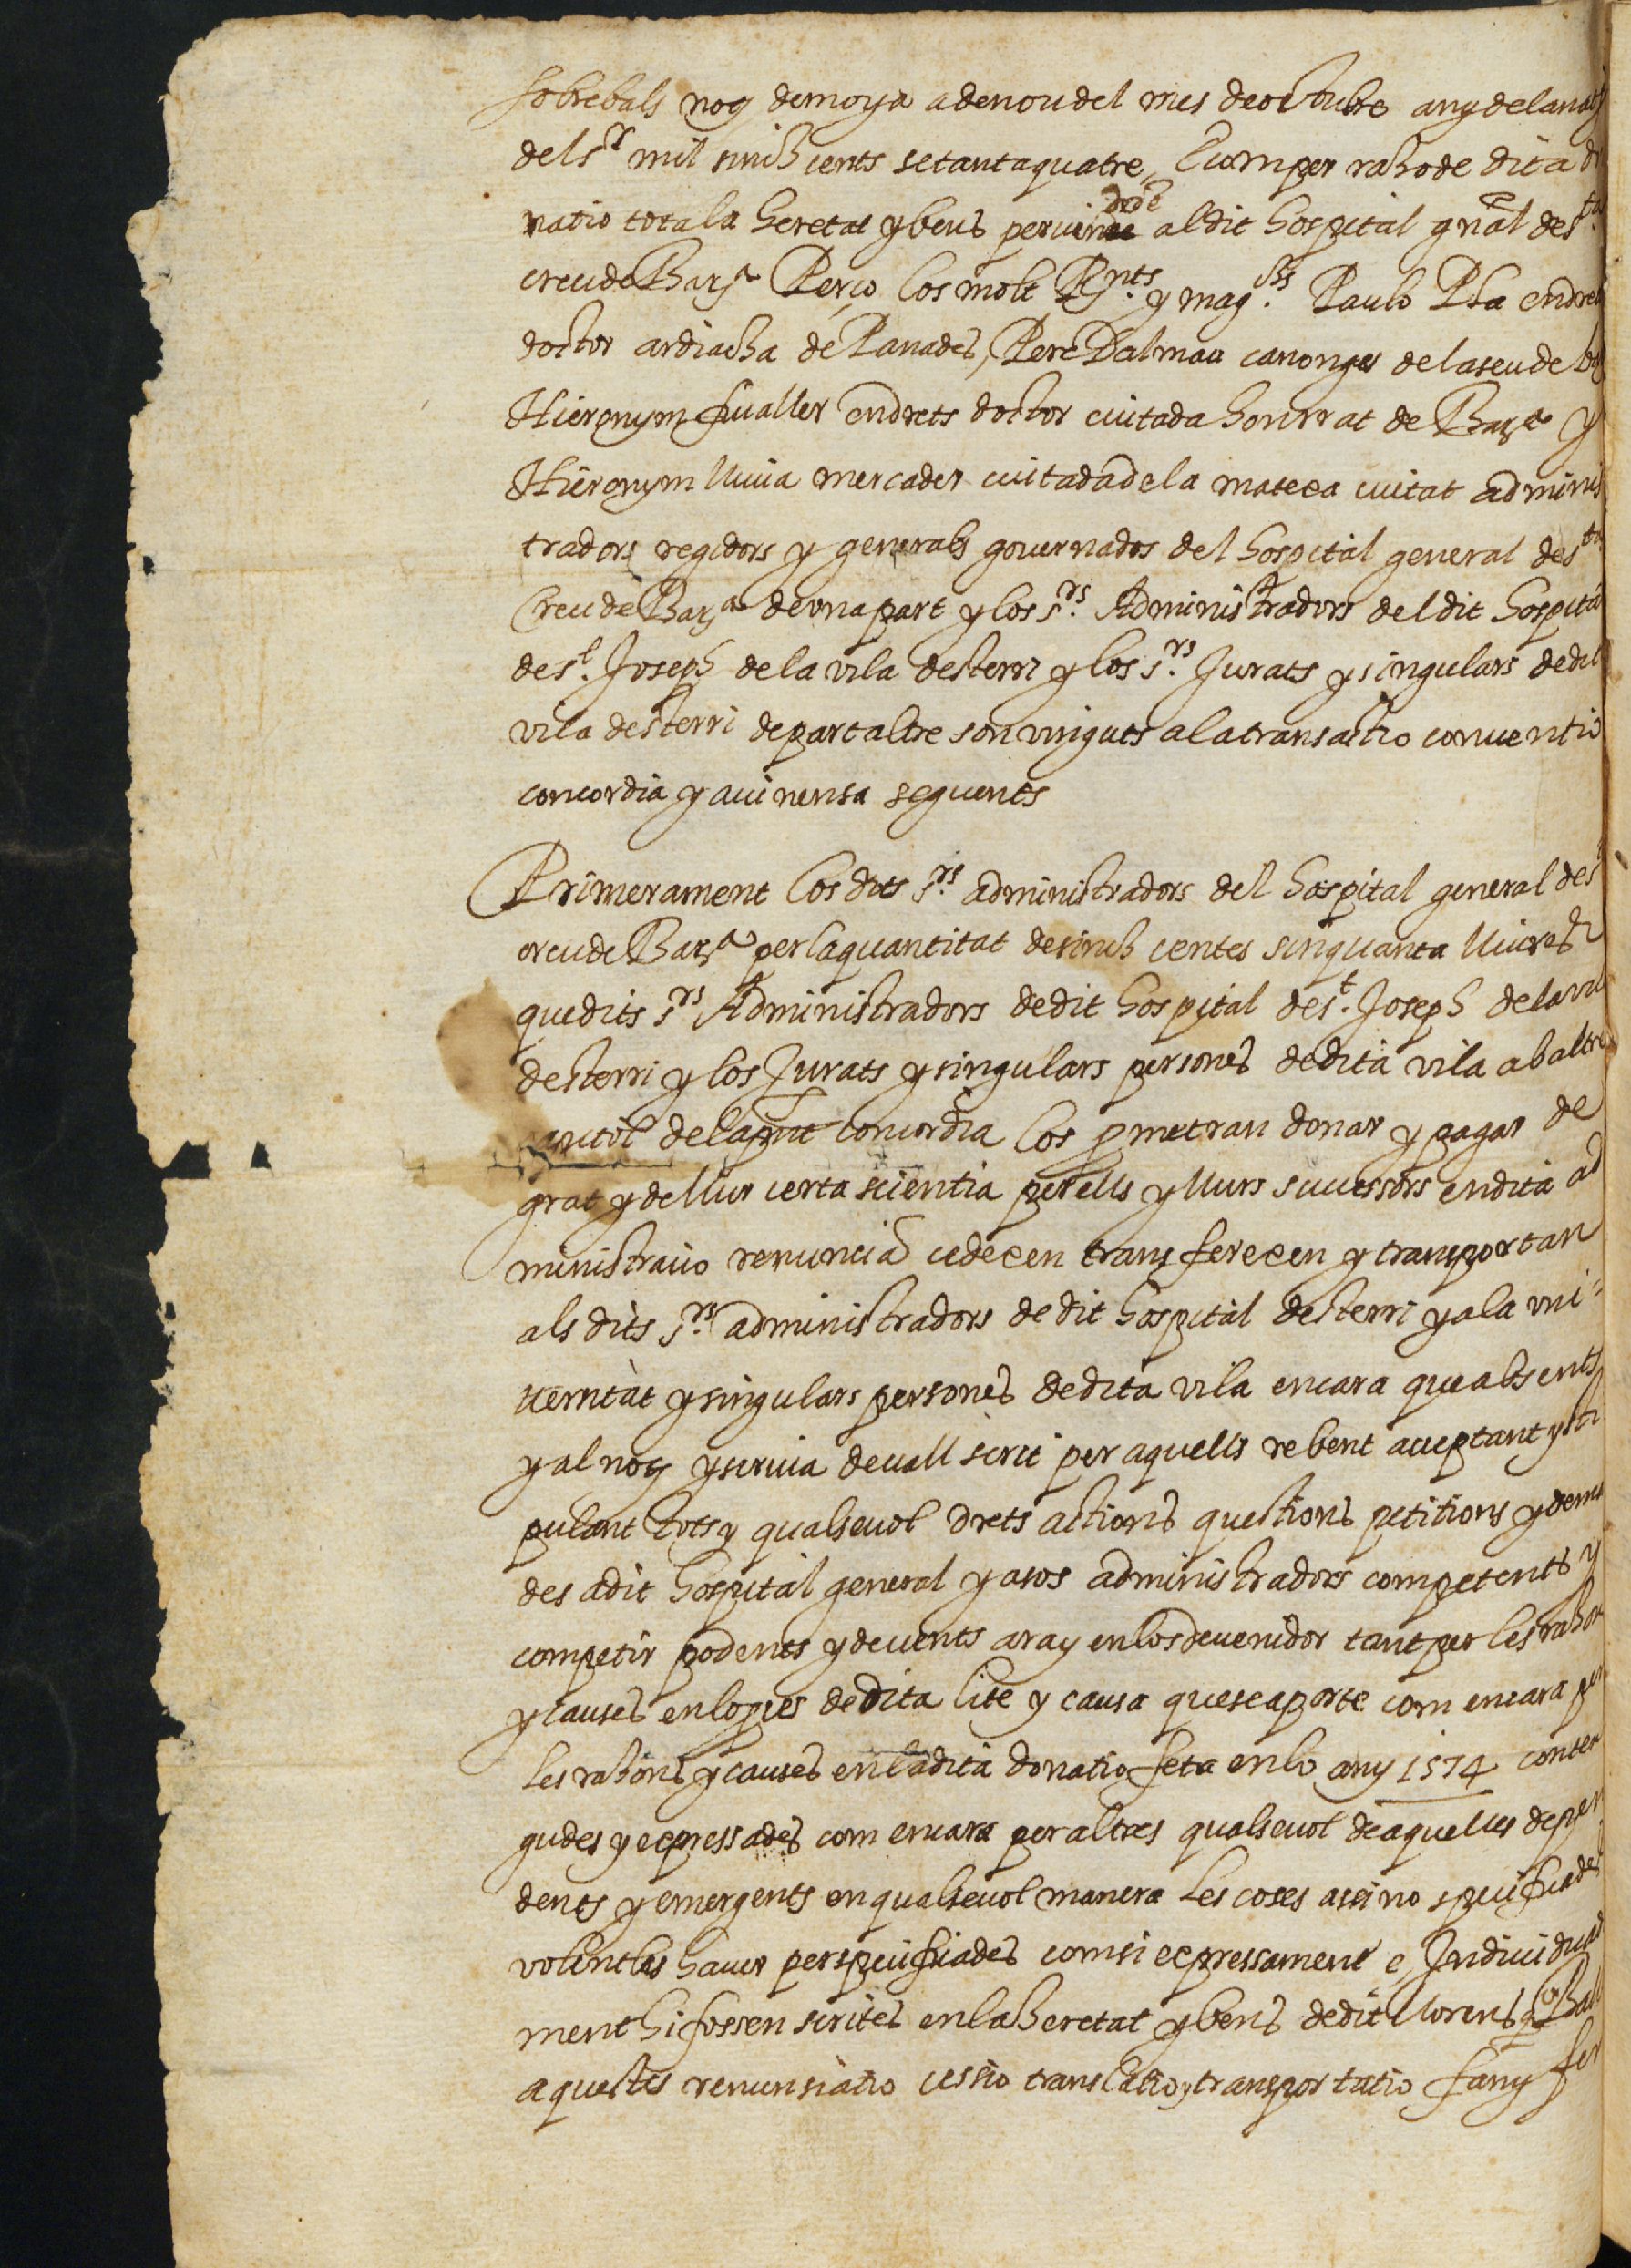 sobrebals noy demoya adenou del mes deoctubre any delanat
del sr mil sinch cents setantaquatre, E com per raho de dita do
natio tota la heretat y bens pervine al dit hospital gnal de sta
creu de Barna Perço los molt Rnts y magchs Paulo Pla en drets
doctor ardiacha de Panades, Pere Dalmau canonges de la seu de
Hieronym fivaller en drets doctor ciutada honrrat de Barna y
Hieronym llivia mercader ciutada de la matexa ciutat adminis
tradors regidors y generals governados del hospital general de sta
Creu de Barna de una part y los srs Administradors del dit hospital
de st Joseph de la vila desterri y los srs Jurats y singulars de dit
vila desterri de part altre son vinguts a la transactio conventio
concordia y avinensa seguents
Primerament los dits srs administradors del hospital general de st
creu de Barna per la quantitat de sinch centes sinquanta lliures
que dits srs Administradors de dit hospital de st Joseph de la vil
desterri y los Jurats y singulars persones de dita vila ab altre
capitol de la pnt concordia los pmetran donar y pagar de
grat y de llur certa scientia per ells y llurs successors en dita ad
ministratio renuncian cedexen transferexen y transportan
als dits srs administradors de dit hospital desterri y a la uni-
versitat y singulars persones de dita vila encara que absents
y al noy y scriva devall scrit per aquells rebent acceptant y sti
pulant tots y qualsevol drets actions questions petitions y deman
des a dit hospital general y a sos administradors competents y
competir podents y devents ara y en lo sdevenidor tant per les rahons
y causes en lo pces de dita lite y causa que se aporte com encara per
les rahons y causes en la dita donatio feta en lo any 1574 conten
gudes y expressades com encara per altres qualsevol de aquelles depen
dents y emergents en qualsevol manera les coses assi no specificades
volent les haver per specificades com si expressament e Individual
ment hi fossen scrites en la heretat y bens de dit llorens
aquestes renunsiatio cessio translatio y transportatio fan y fer